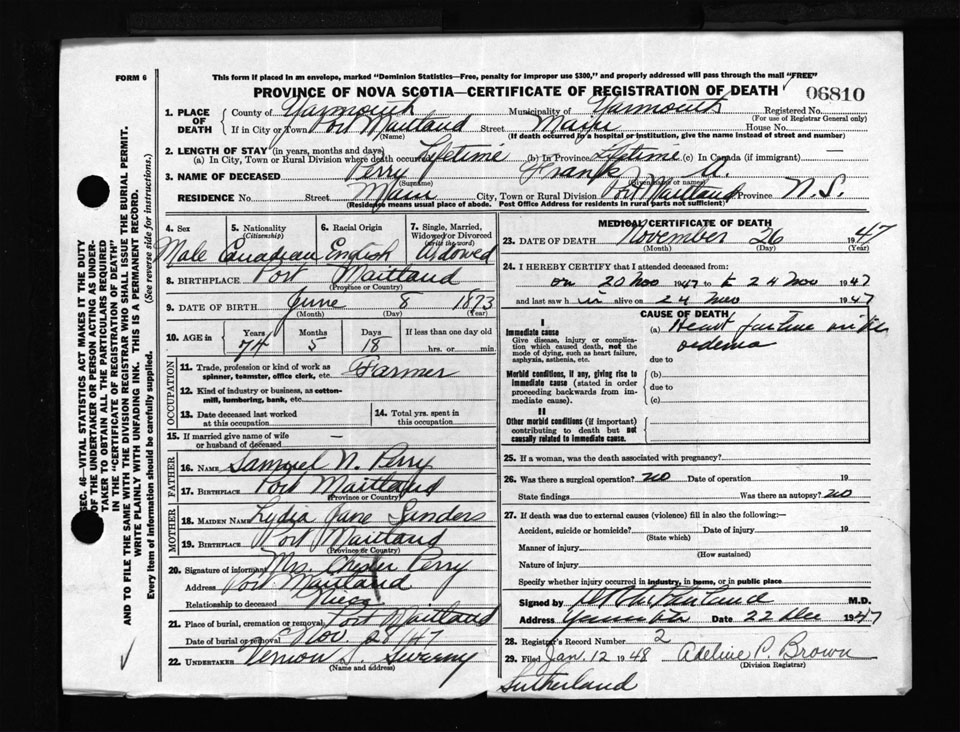 FORM 6
This form if placed in an envelope, marked "Dominion Statistics—Free, penalty for improper use $300," and properly addressed will pass through the mail "FREE"
PROVINCE OF NOVA SCOTIA—CERTIFICATE OF REGISTRATION OF DEATH
06810
1. PLACE OF DEATH
County of Yarmouth Municipality of Yarmouth Registered No.
(For use of Registrar General only)
If in City or Town Port Maitland Street Main House No.
(Name) (If death occurred in a hospital or institution, give the name instead of street and number)
2. LENGTH OF STAY (in years, months and days)
(a) In City, Town or Rural Division where death occurred Lifetime (b) In Province Lifetime (c) In Canada (if immigrant) —
3. NAME OF DECEASED Perry Frank A.
(Surname) (Given name or names)
RESIDENCE No. Street Main City, Town or Rural Division Port Maitland Province N.S.
(Residence means usual place of abode. Post Office Address for residents in rural parts not sufficient)
4. Sex
Male
5. Nationality
(Citizenship)
Canadian
6. Racial Origin
English
7. Single, Married, Widowed or Divorced
(write the word)
Widowed
8. BIRTHPLACE Port Maitland
(Province or Country)
9. DATE OF BIRTH June 8 1873
(Month) (Day) (Year)
10. AGE in
Years Months Days If less than one day old
74 5 18 hrs. or min.
OCCUPATION
11. Trade, profession or kind of work as spinner, teamster, office clerk, etc. Farmer
12. Kind of industry or business, as cotton-mill, lumbering, bank, etc.
13. Date deceased last worked at this occupation
14. Total yrs. spent in this occupation
15. If married give name of wife or husband of deceased —
FATHER
16. NAME Samuel N. Perry
17. BIRTHPLACE Port Maitland
(Province or Country)
MOTHER
18. MAIDEN NAME Lydia Jane Sanders
19. BIRTHPLACE Port Maitland
(Province or Country)
20. Signature of informant Mrs. Chester Perry
Address Port Maitland
Relationship to deceased Niece
21. Place of burial, cremation or removal Port Maitland
Date of burial or removal Nov. 28/47
22. UNDERTAKER Vernon S. Sweeny
(Name and address)
MEDICAL CERTIFICATE OF DEATH
23. DATE OF DEATH November 26 1947
(Month) (Day)
24. I HEREBY CERTIFY that I attended deceased from:
on 20 Nov 1947 to 24 Nov 1947
and last saw h im alive on 24 Nov 1947
CAUSE OF DEATH
I
Immediate cause
Give disease, injury or complication which caused death, not the mode of dying, such as heart failure, asphyxia, asthenia, etc.
(a) Heart failure with oedema
due to
Morbid conditions, if any, giving rise to immediate cause (stated in order proceeding backwards from immediate cause).
(b)
due to
(c)
II
Other morbid conditions (if important) contributing to death but not causally related to immediate cause.
25. If a woman, was the death associated with pregnancy?
26. Was there a surgical operation? no Date of operation 19
State findings Was there an autopsy? no
27. If death was due to external causes (violence) fill in also the following:—
Accident, suicide or homicide? Date of injury 19
(State which)
Manner of injury
(How sustained)
Nature of injury
Specify whether injury occurred in industry, in home, or in public place
Signed by M.D.
Address Date 22 Dec 1947
28. Registrar's Record Number 2
29. Filed Jan. 12 1948 Adeline P. Brown
(Division Registrar)
Sutherland
SEC. 46—VITAL STATISTICS ACT MAKES IT THE DUTY OF THE UNDERTAKER OR PERSON ACTING AS UNDERTAKER TO OBTAIN ALL THE PARTICULARS REQUIRED IN THE "CERTIFICATE OF REGISTRATION OF DEATH" AND TO FILE THE SAME WITH THE DIVISION REGISTRAR WHO SHALL ISSUE THE BURIAL PERMIT.
WRITE PLAINLY WITH UNFADING INK. THIS IS A PERMANENT RECORD.
Every item of information should be carefully supplied. (See reverse side for instructions.)